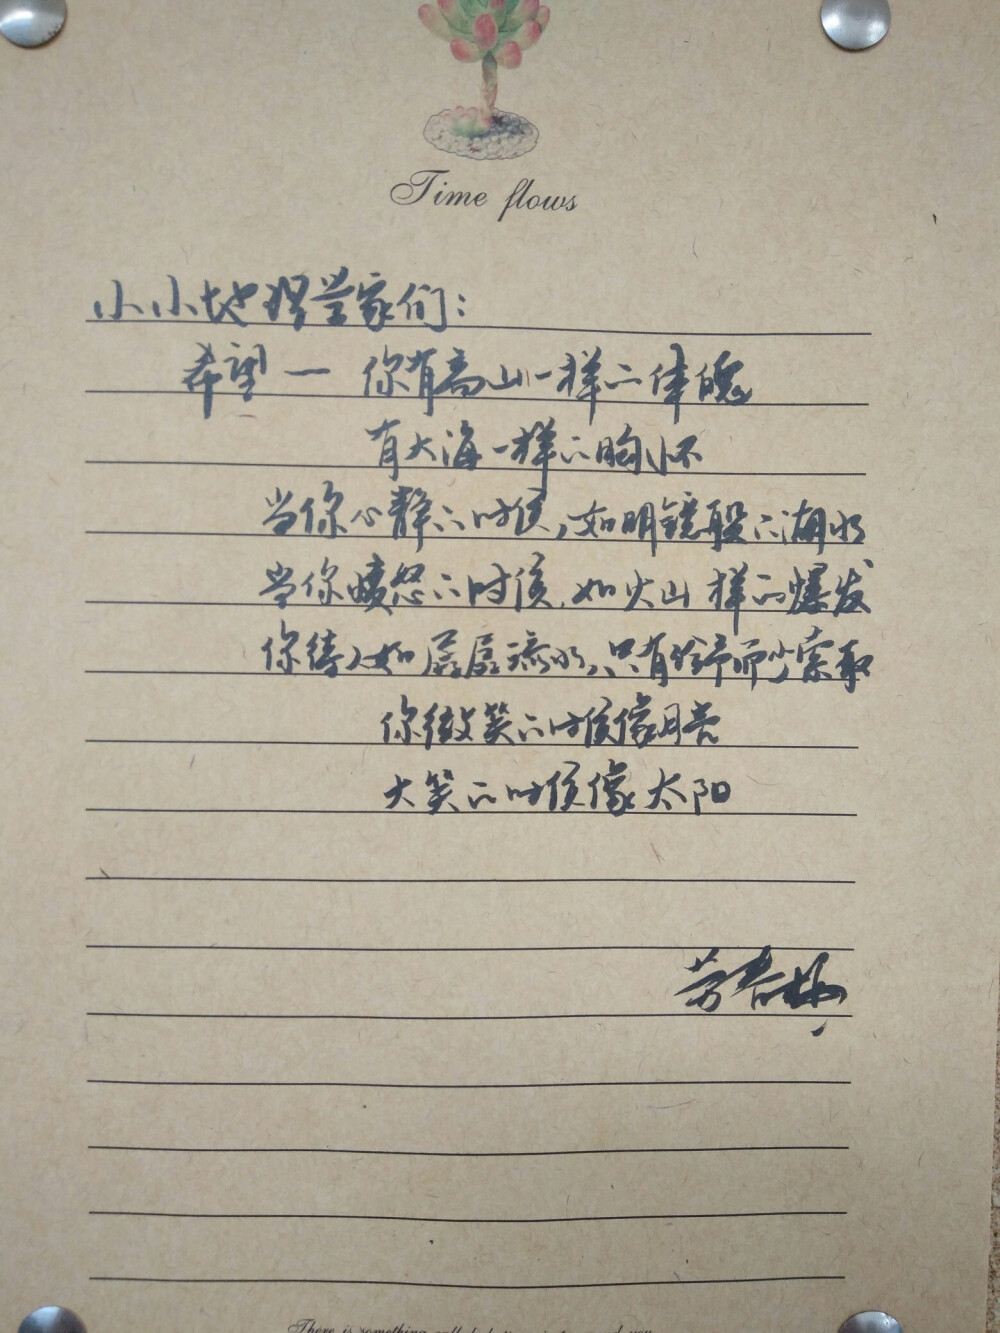 Time flows
小小地理学家们：
希望一 你有高山一样的体魄
有大海一样的胸怀
当你心静的时候，如明镜般的湖水
当你愤怒的时候，如火山 样的爆发
你待人如 潺潺流水，只有给予而少索取
你微笑的时候像月亮
大笑的时候像太阳
劳春梅
There is something called